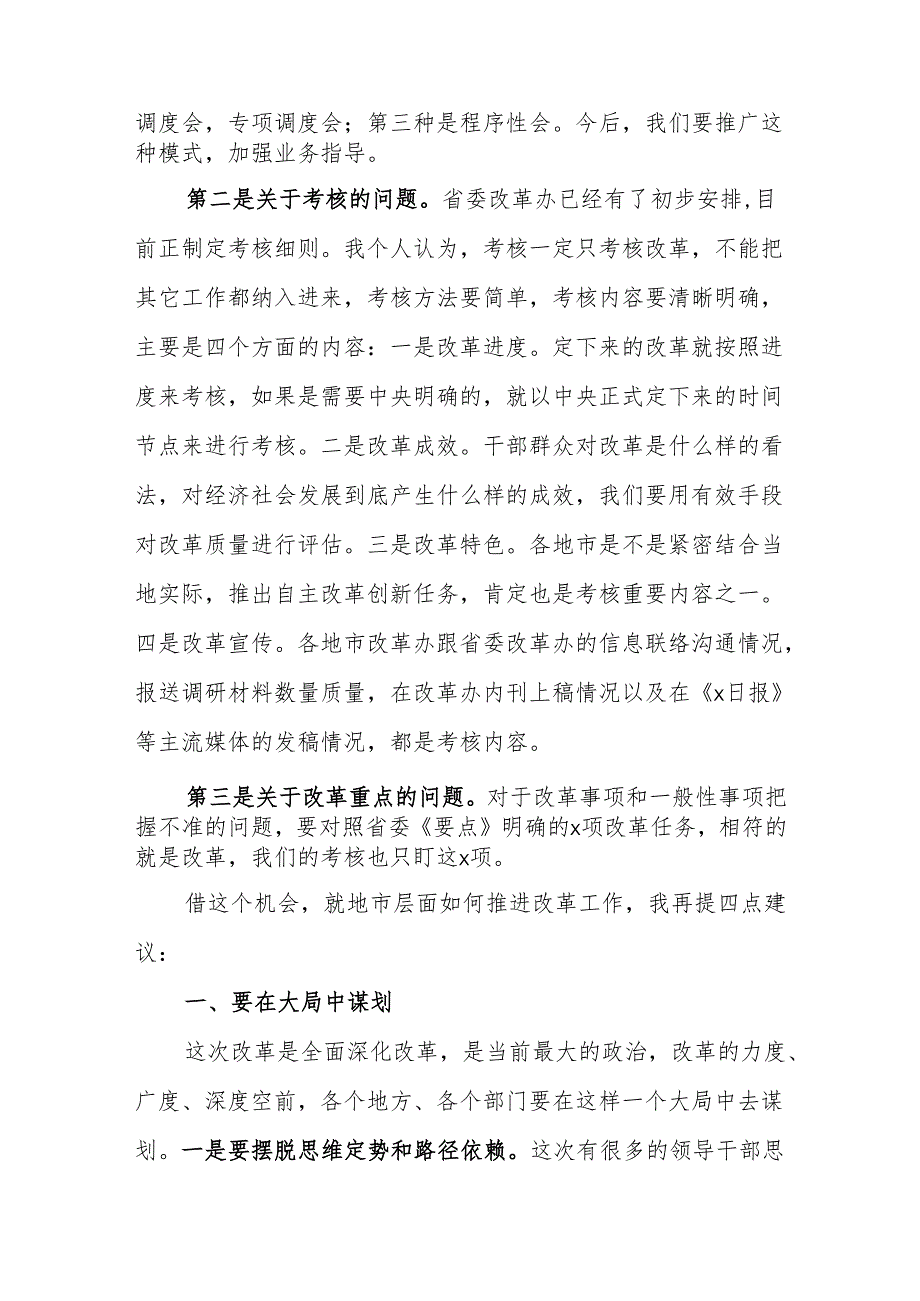 调度会，专项调度会；第三种是程序性会。今后，我们要推广这
种模式，加强业务指导。
第二是关于考核的问题。省委改革办已经有了初步安排,目
前正制定考核细则。我个人认为，考核一定只考核改革，不能把
其它工作都纳入进来，考核方法要简单，考核内容要清晰明确，
主要是四个方面的内容：一是改革进度。定下来的改革就按照进
度来考核，如果是需要中央明确的，就以中央正式定下来的时间
节点来进行考核。二是改革成效。干部群众对改革是什么样的看
法，对经济社会发展到底产生什么样的成效，我们要用有效手段
对改革质量进行评估。三是改革特色。各地市是不是紧密结合当
地实际，推出自主改革创新任务，肯定也是考核重要内容之一。
四是改革宣传。各地市改革办跟省委改革办的信息联络沟通情况，
报送调研材料数量质量，在改革办内刊上稿情况以及在《x日报》
等主流媒体的发稿情况，都是考核内容。
第三是关于改革重点的问题。对于改革事项和一般性事项把
握不准的问题，要对照省委《要点》明确的x项改革任务，相符的
就是改革，我们的考核也只盯这x项。
借这个机会，就地市层面如何推进改革工作，我再提四点建
议：
一、要在大局中谋划
这次改革是全面深化改革，是当前最大的政治，改革的力度、
广度、深度空前，各个地方、各个部门要在这样一个大局中去谋
划。一是要摆脱思维定势和路径依赖。这次有很多的领导干部思